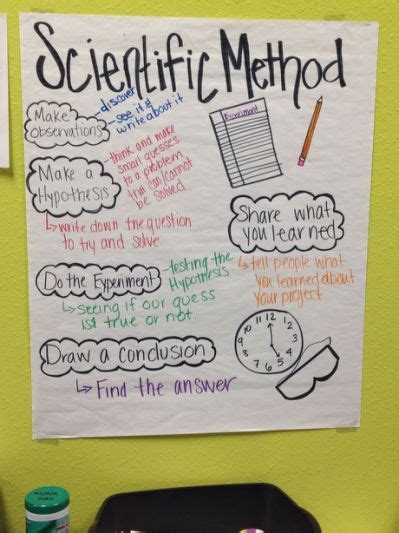 Scientific Method
Make
observations
discover
see it &
write about it
Experiment
Make a
Hypothesis
think and make
small guesses
to a problem
that can/cannot
be solved.
write down the question
to try and solve
Share what
you learned
tell people what
you learned about
your project
Do the Experiment
testing the
Hypothesis
seeing if our guess
is true or not.
12
1
2
3
4
5
6
7
8
9
10
11
Draw a conclusion
Find the answer